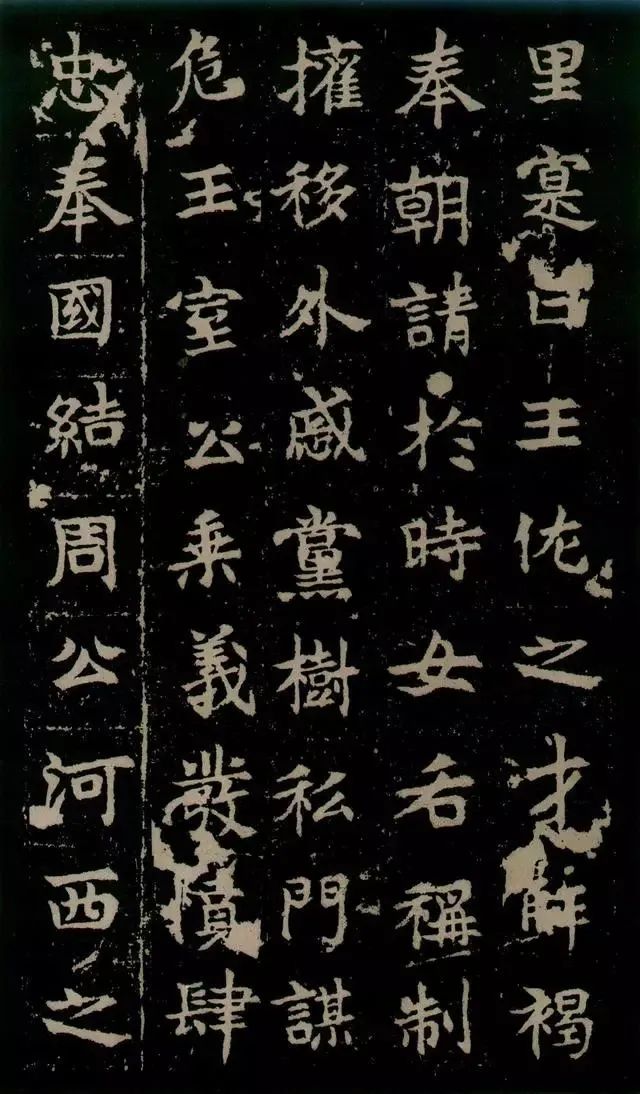 里寔曰王佐之才解褐
奉朝請於時女后稱制
㩲移外戚黨樹私門謀
危王室公乘義發憤肆
忠奉國結周公河西之